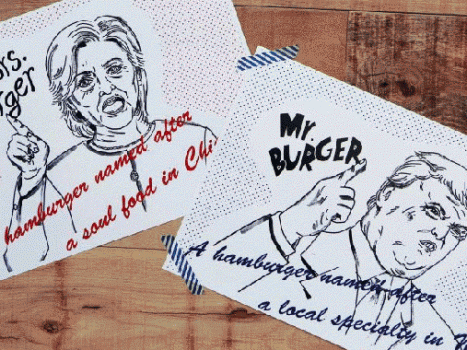 hamburger named after
a soul food in
Mr.
BURGER
A hamburger named after
a local specialty in